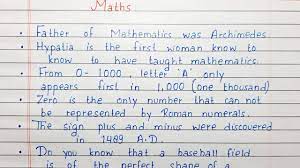 Maths
• Father of Mathematics was Archimedes.
• Hypatia is the first woman know to
know to have taught mathematics.
• From 0 - 1000, letter 'A' only
appears first in 1,000 (one thousand)
• Zero is the only number that can not
be represented by Roman numerals.
• The sign plus and minus were discovered
in 1489 A.D.
• Do you know that a baseball field
is of the perfect shape of a